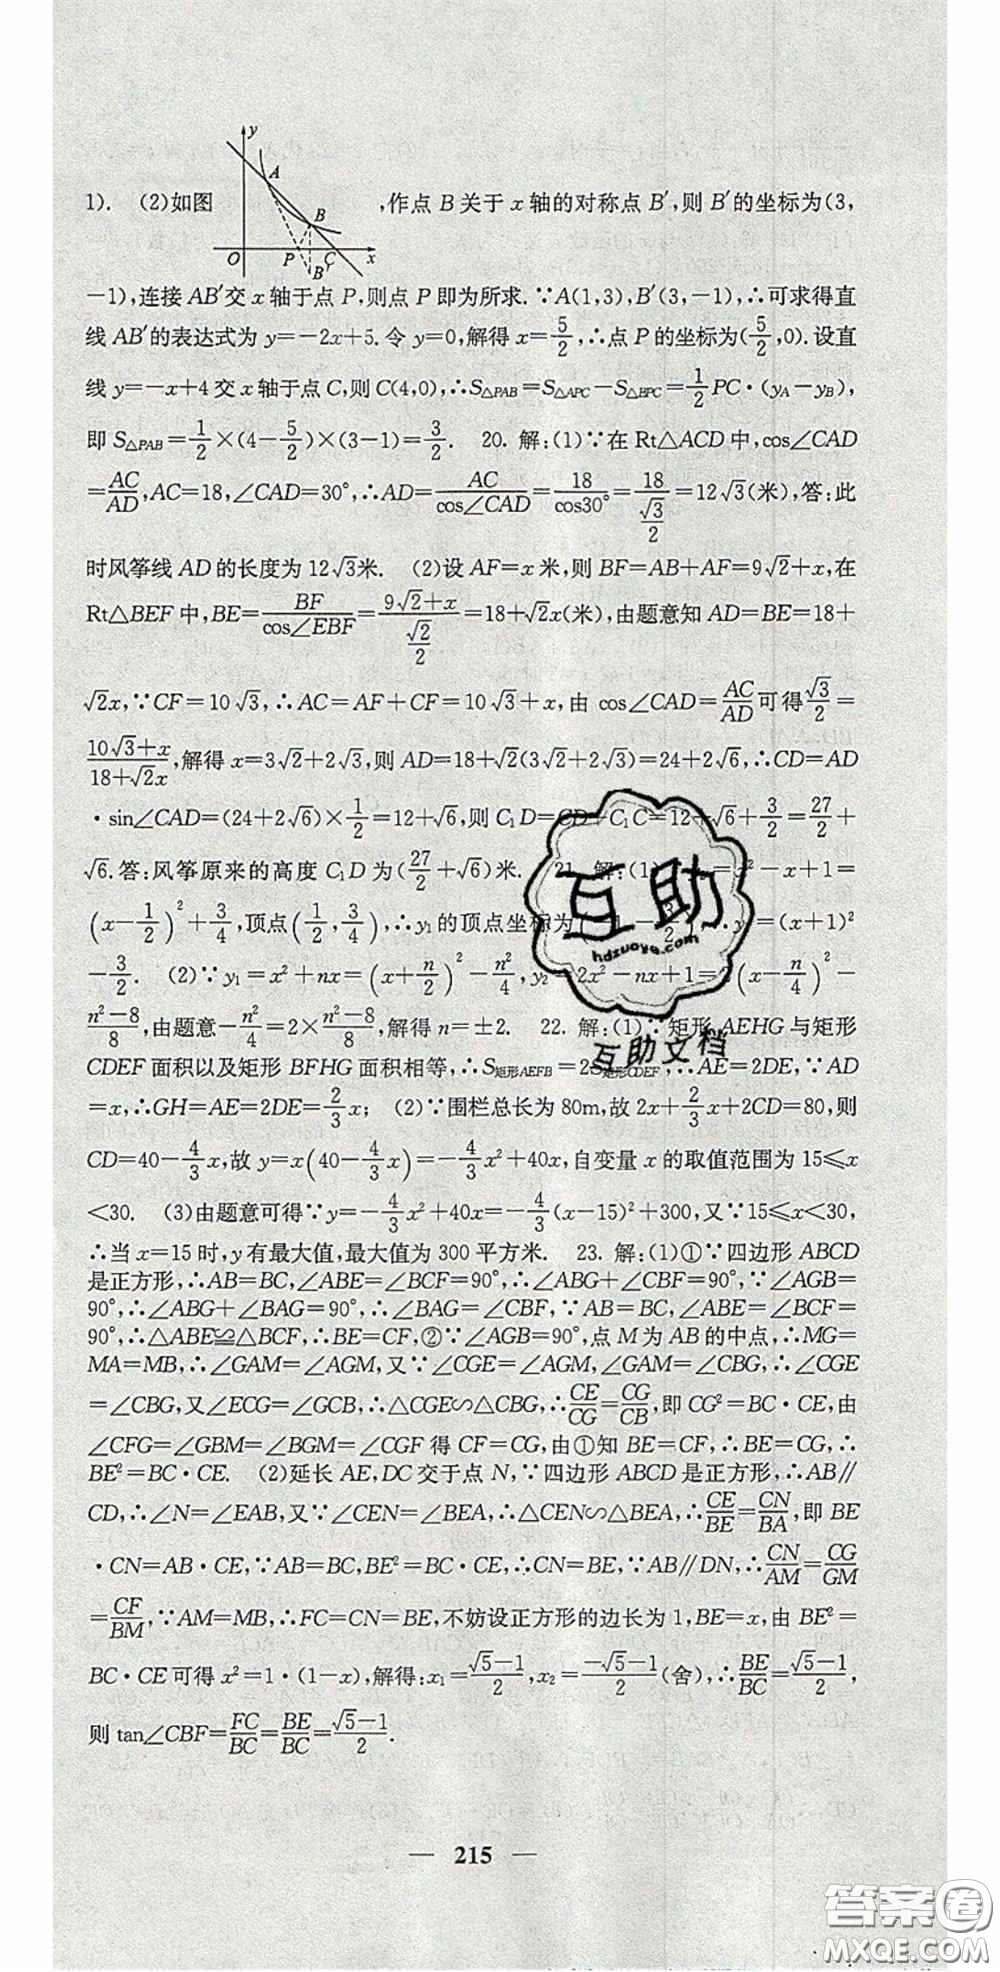 y
A
B
O P C x
B′
1). (2)如图 ,作点 B 关于 x 轴的对称点 B′,则 B′的坐标为(3,
−1),连接 AB′交 x 轴于点 P,则点 P 即为所求.∵A(1,3),B′(3,−1),∴可求得直
线 AB′的表达式为 y=−2x+5.令 y=0,解得 x=5/2,∴点 P 的坐标为(5/2,0).设直
线 y=−x+4 交 x 轴于点 C,则 C(4,0),∴S△PAB=S△APC−S△BPC=1/2 PC·(yA−yB),
即 S△PAB=1/2×(4−5/2)×(3−1)=3/2. 20. 解:(1)∵在 Rt△ACD 中,cos∠CAD
=AC/AD,AC=18,∠CAD=30°,∴AD=AC/cos∠CAD=18/cos30°=18/(√3/2)=12√3(米),答:此
时风筝线 AD 的长度为 12√3米. (2)设 AF=x 米,则 BF=AB+AF=9√2+x,在
Rt△BEF 中,BE=BF/cos∠EBF=(9√2+x)/(√2/2)=18+√2x(米),由题意知 AD=BE=18+
√2x,∵CF=10√3,∴AC=AF+CF=10√3+x,由 cos∠CAD=AC/AD可得√3/2=
(10√3+x)/(18+√2x),解得 x=3√2+2√3,则 AD=18+√2(3√2+2√3)=24+2√6,∴CD=AD
·sin∠CAD=(24+2√6)×1/2=12+√6,则 C₁D=CD−C₁C=12+√6+3/2=27/2+
√6.答:风筝原来的高度 C₁D 为(27/2+√6)米. 21. 解:(1) =x²−x+1=
(x−1/2)²+3/4,顶点(1/2,3/4),∴y₁的顶点坐标为 =(x+1)²
−3/2. (2)∵y₁=x²+nx=(x+n/2)²−n²/4,y₂=2x²−nx+1=2(x−n/4)²−
(n²−8)/8,由题意−n²/4=2×(n²−8)/8,解得 n=±2. 22. 解:(1)∵矩形 AEHG 与矩形
CDEF 面积以及矩形 BFHG 面积相等,∴S矩形AEFB=2S矩形CDEF,∴AE=2DE,∵AD
=x,∴GH=AE=2DE=2/3x; (2)∵围栏总长为 80m,故 2x+2/3x+2CD=80,则
CD=40−4/3x,故 y=x(40−4/3x)=−4/3x²+40x,自变量 x 的取值范围为 15≤x
<30. (3)由题意可得∵y=−4/3x²+40x=−4/3(x−15)²+300,又∵15≤x<30,
∴当 x=15 时,y 有最大值,最大值为 300 平方米. 23. 解:(1)①∵四边形 ABCD
是正方形,∴AB=BC,∠ABE=∠BCF=90°,∴∠ABG+∠CBF=90°,∵∠AGB=
90°,∴∠ABG+∠BAG=90°,∴∠BAG=∠CBF,∵AB=BC,∠ABE=∠BCF=
90°,∴△ABE≌△BCF,∴BE=CF,②∵∠AGB=90°,点 M 为 AB 的中点,∴MG=
MA=MB,∴∠GAM=∠AGM,又∵∠CGE=∠AGM,∠GAM=∠CBG,∴∠CGE
=∠CBG,又∠ECG=∠GCB,∴△CGE∽△CBG,∴CE/CG=CG/CB,即 CG²=BC·CE,由
∠CFG=∠GBM=∠BGM=∠CGF 得 CF=CG,由①知 BE=CF,∴BE=CG,∴
BE²=BC·CE. (2)延长 AE,DC 交于点 N,∵四边形 ABCD 是正方形,∴AB∥
CD,∴∠N=∠EAB,又∵∠CEN=∠BEA,∴△CEN∽△BEA,∴CE/BE=CN/BA,即 BE
·CN=AB·CE,∵AB=BC,BE²=BC·CE,∴CN=BE,∵AB∥DN,∴CN/AM=CG/GM
=CF/BM,∵AM=MB,∴FC=CN=BE,不妨设正方形的边长为 1,BE=x,由 BE²=
BC·CE 可得 x²=1·(1−x),解得:x₁=(√5−1)/2,x₂=(−√5−1)/2(舍),∴BE/BC=(√5−1)/2,
则 tan∠CBF=FC/BC=BE/BC=(√5−1)/2.
互助
hdzuoye.com
互助文档
— 215 —
答案圈
MXQE.COM